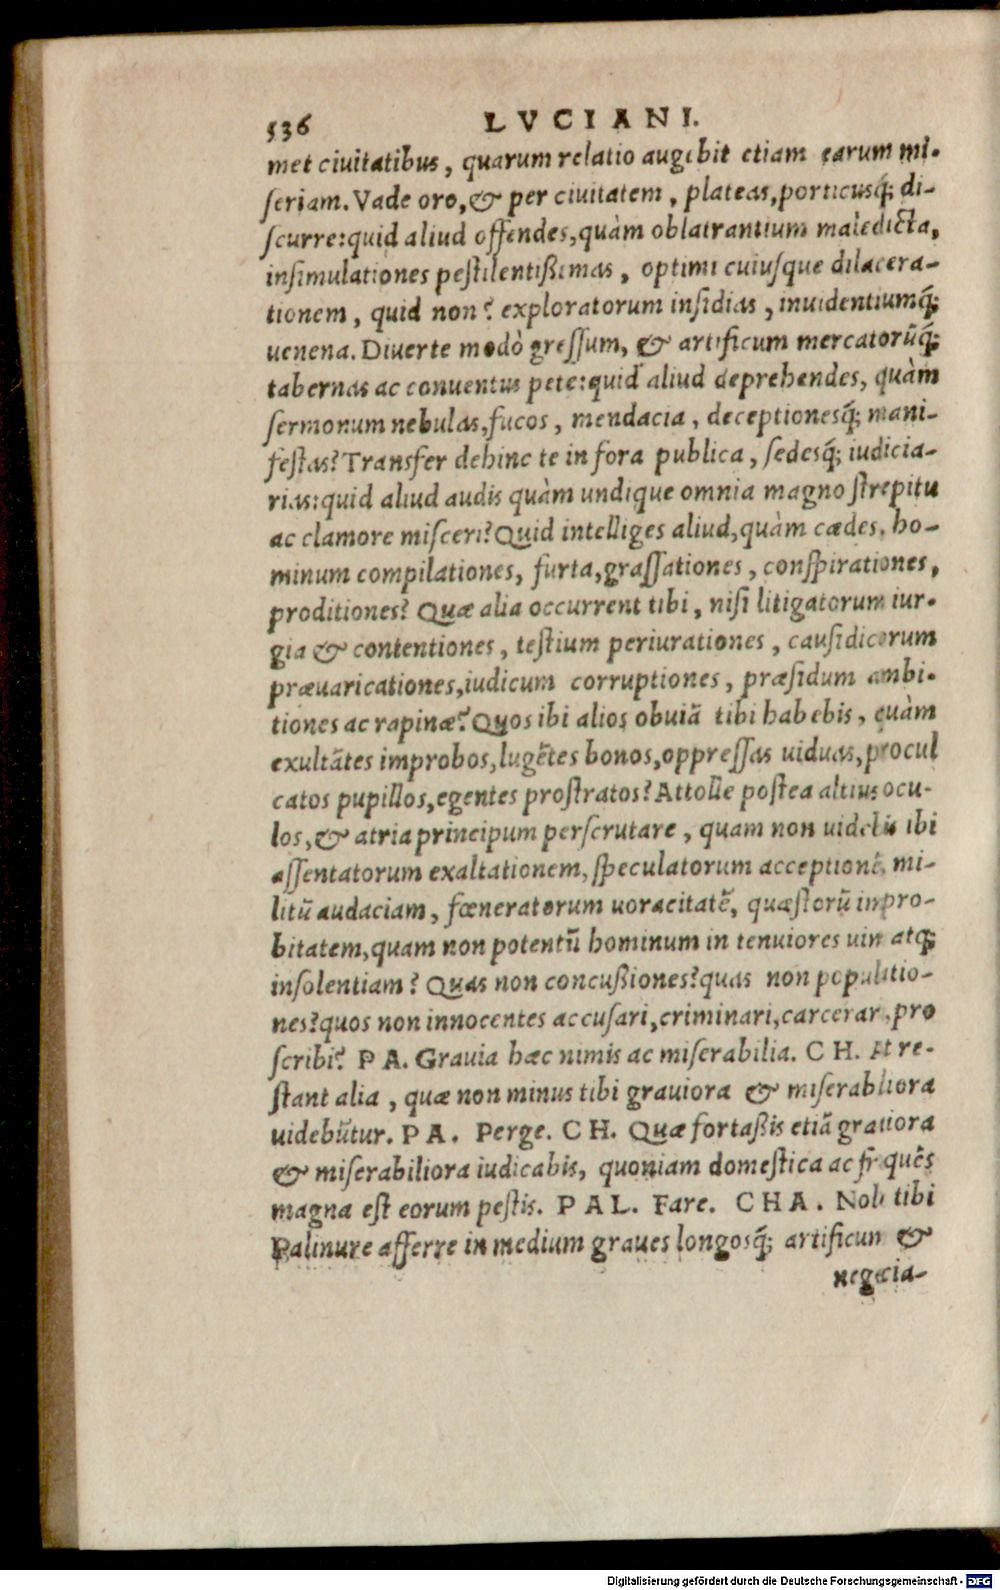 536 LVCIANI.
met ciuitatibus, quarum relatio augebit etiam earum mi-
ſeriam. Vade oro, & per ciuitatem, plateas, porticusq́; di-
ſcurre: quid aliud offendes, quàm oblatrantium maledicta,
inſimulationes peſtilentißimas, optimi cuiuſque dilacera-
tionem, quid non? exploratorum inſidias, inuidentiumq́;
uenena. Diuerte modò greſſum, & artificum mercatorũq́;
tabernas ac conuentus pete: quid aliud deprehendes, quàm
ſermonum nebulas, fucos, mendacia, deceptionesq́; mani-
feſtas? Transfer dehinc te in fora publica, ſedesq́; iudicia-
rias: quid aliud audis quàm undique omnia magno ſtrepitu
ac clamore miſceri? Quid intelliges aliud, quàm cædes, ho-
minum compilationes, furta, graſſationes, conſpirationes,
proditiones? Quæ alia occurrent tibi, niſi litigatorum iur-
gia & contentiones, teſtium periurationes, cauſidicorum
præuaricationes, iudicum corruptiones, præſidum ambi-
tiones ac rapinæ? Quos ibi alios obuiã tibi habebis, quàm
exultãtes improbos, lugẽtes bonos, oppreſſas uiduas, procul
catos pupillos, egentes proſtratos? Attolle poſtea altius ocu-
los, & atria principum perſcrutare, quam non uidebis ibi
aſſentatorum exaltationem, ſpeculatorum acceptionẽ, mi-
litũ audaciam, fœneratorum uoracitatẽ, quæſtorũ impro-
bitatem, quam non potentũ hominum in tenuiores uim atq;
inſolentiam? Quas non concußiones? quas non populatio-
nes? quos non innocentes accuſari, criminari, carcerari, pro
ſcribi? PA. Grauia hæc nimis ac miſerabilia. CH. At re-
ſtant alia, quæ non minus tibi grauiora & miſerabiliora
uidebũtur. PA. Perge. CH. Quæ fortaßis etiã grauiora
& miſerabiliora iudicabis, quoniam domeſtica ac frequẽs
magna eſt eorum peſtis. PAL. Fare. CHA. Noli tibi
Palinure afferre in medium graues longosq́; artificum &
negocia-
Digitalisierung gefördert durch die Deutsche Forschungsgemeinschaft - DFG